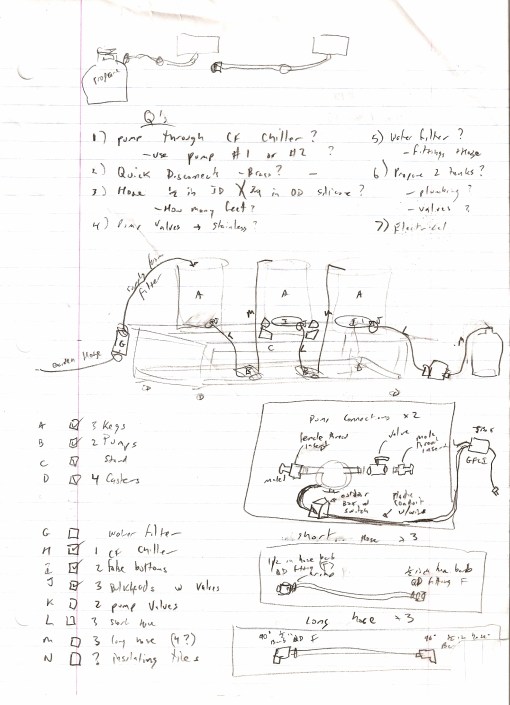 Propane
Q's
1) pump through CF Chiller?
- use pump #1 or #2 ?
2) Quick Disconnects - Brass? -
3) Hose 1/2 in ID X 3/4 in OD silicone?
- How many feet?
4) Pump valves → stainless?
5) Water filter?
- fittings + Hose
6) Propane 2 tanks?
- plumbing?
- valves?
7) Electrical
Supply from
Filter
Garden Hose
G
A
A
A
M
M
J
I
C
L
L
L
B
B
M
D
D
D
A 3 Kegs
B 2 Pumps
C Stand
D 4 Casters
G water filter
H 1 CF Chiller
I 2 false bottoms
J 3 Bulkheads w Valves
K 2 pump Valves
L 3 short hose
M 3 long hose (4?)
N ? insulating tiles
Pump Connections x2
female thread
insert
valve
male
thread
insert
male
outdoor
Box w
switch
plastic
conduit
w/wire
GFCI
short Hose x3
1/2 in hose barb
QD fitting
1/2 in hose barb
QD fitting F
Long hose x3
90° 1/2"
Barb QD F
90°